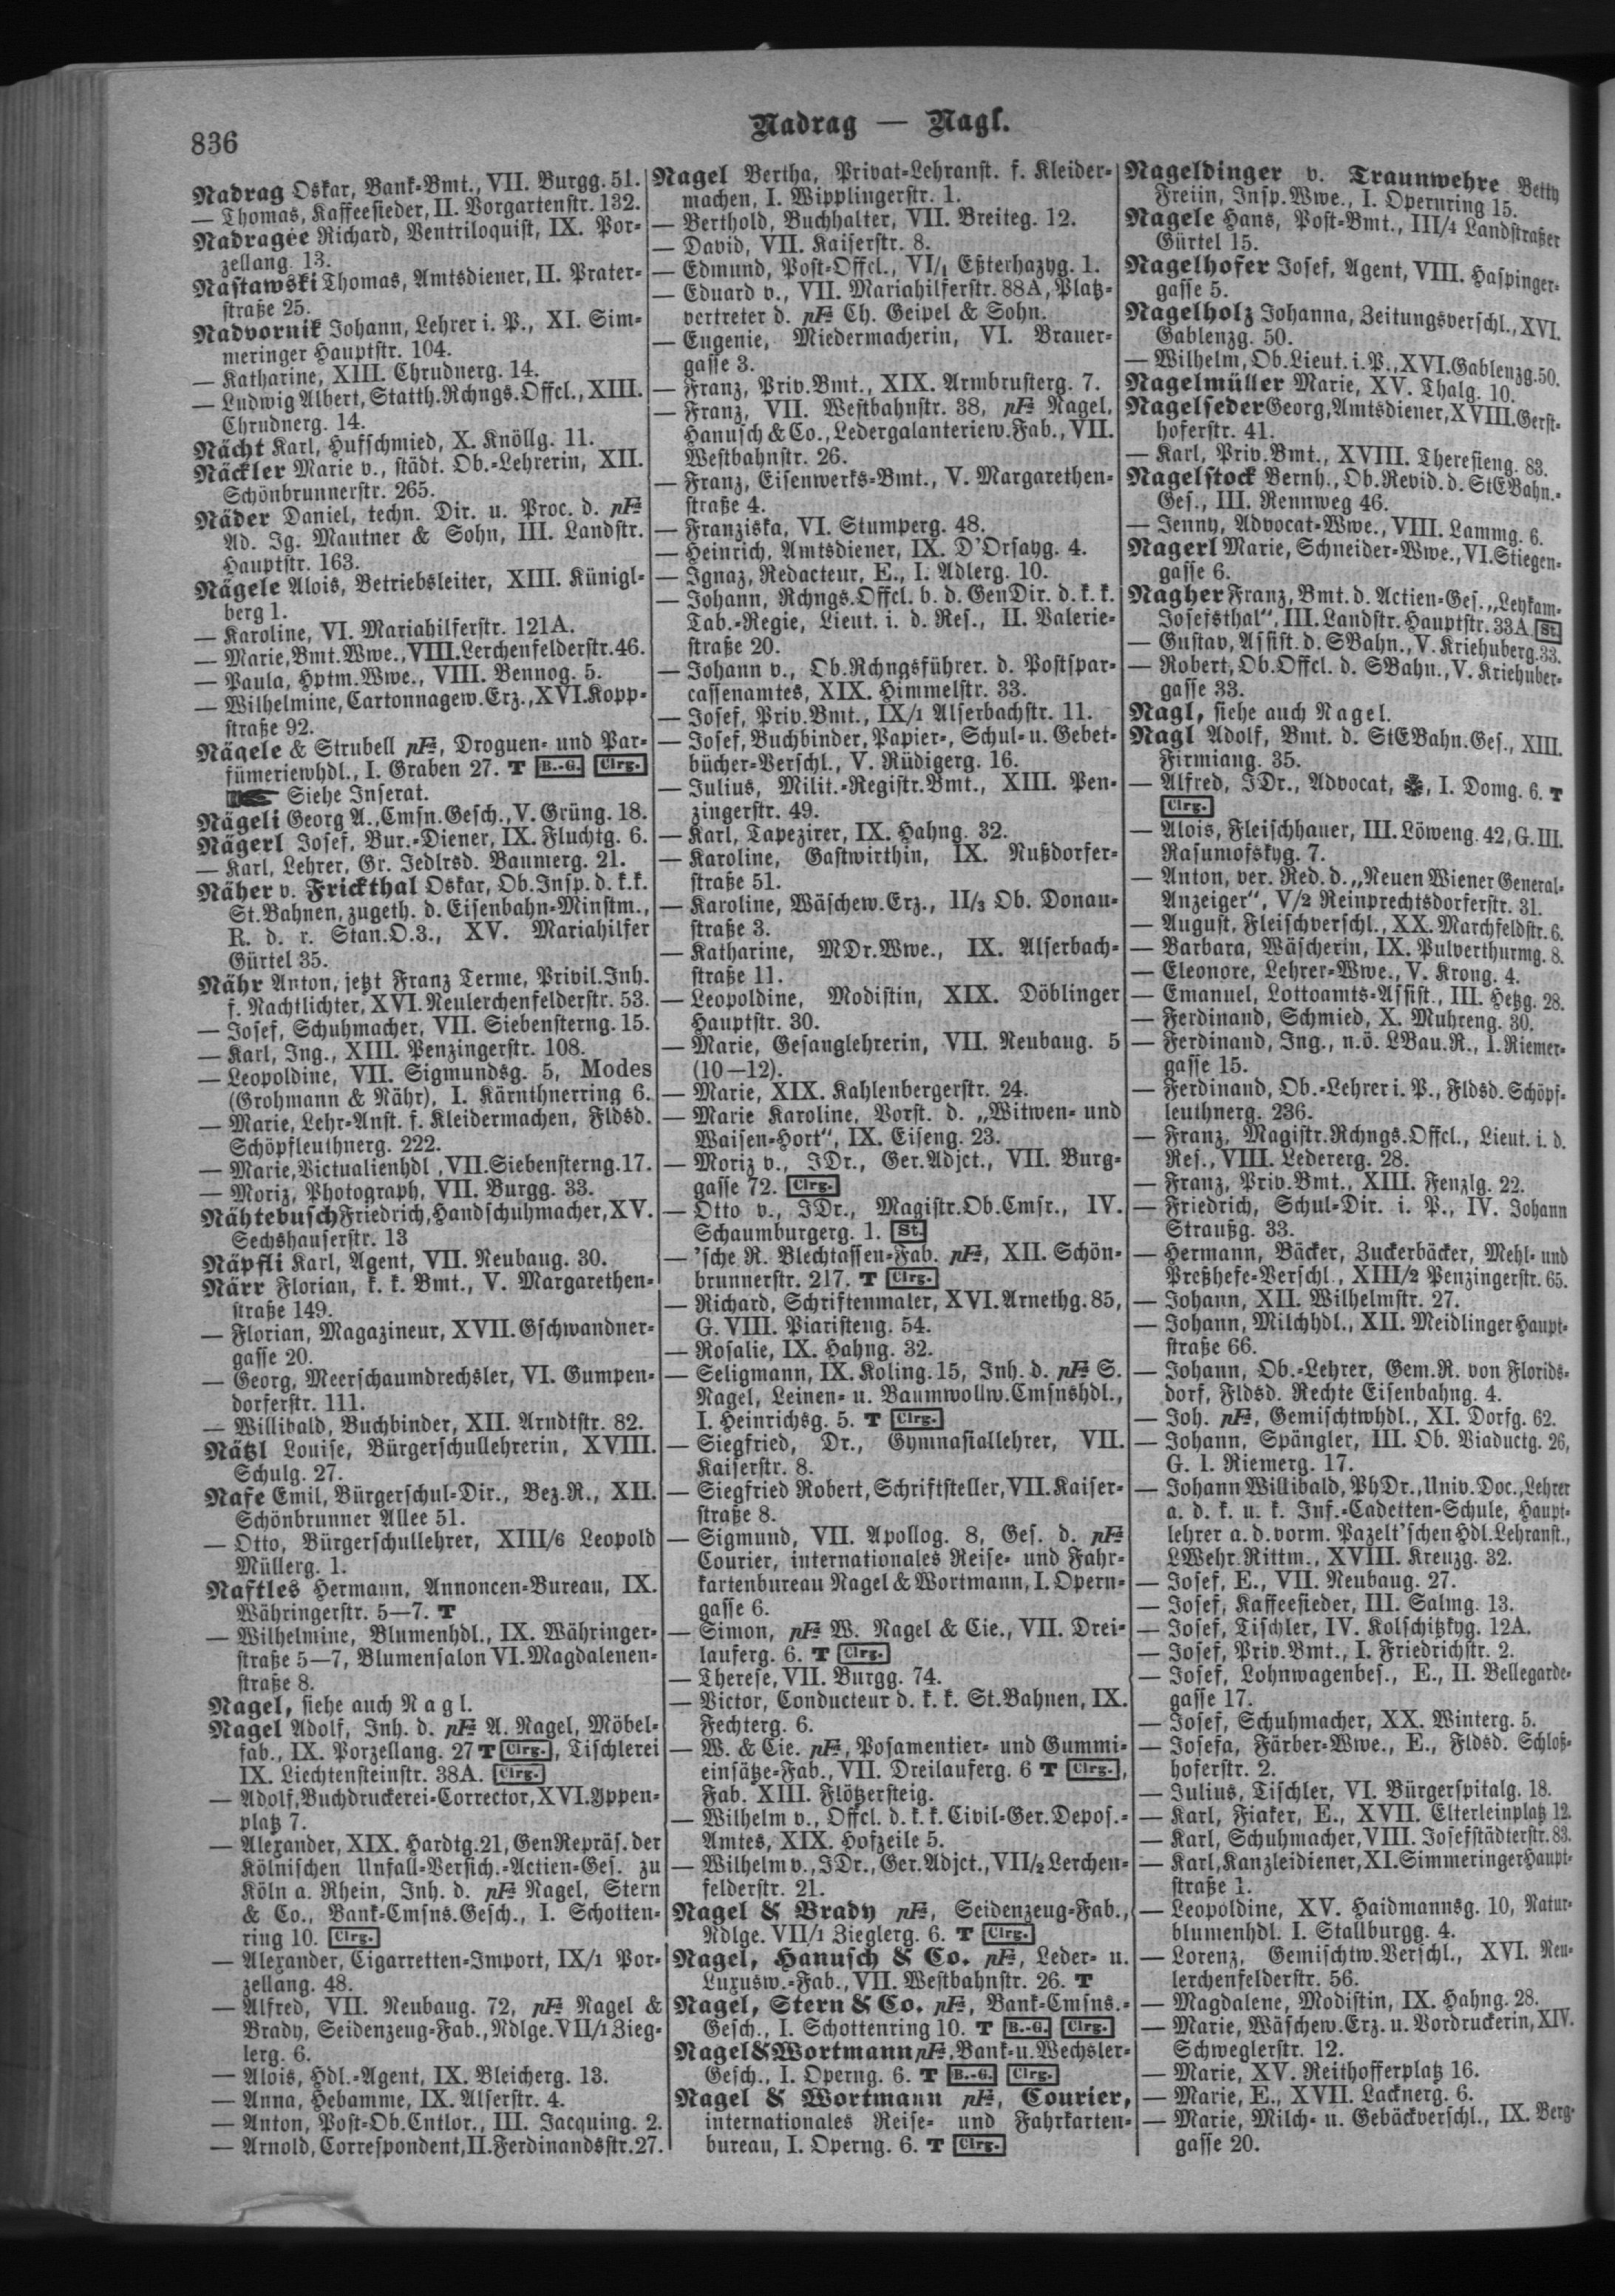 836
Nadrag — Nagl.
Nadrag Oskar, Bank-Bmt., VII. Burgg. 51.
— Thomas, Kaffeesieder, II. Vorgartenstr. 132.
Nadragée Richard, Ventriloquist, IX. Por-
zellang. 13.
Nastawski Thomas, Amtsdiener, II. Prater-
straße 25.
Nadvornik Johann, Lehrer i. P., XI. Sim-
meringer Hauptstr. 104.
— Katharine, XIII. Chrudnerg. 14.
— Ludwig Albert, Statth.Rchngs.Offcl., XIII.
Chrudnerg. 14.
Nächt Karl, Hufschmied, X. Knöllg. 11.
Näckler Marie v., städt. Ob.-Lehrerin, XII.
Schönbrunnerstr. 265.
Näder Daniel, techn. Dir. u. Proc. d. pFa
Ad. Ig. Mautner & Sohn, III. Landstr.
Hauptstr. 163.
Nägele Alois, Betriebsleiter, XIII. Künigl-
berg 1.
— Karoline, VI. Mariahilferstr. 121A.
— Marie, Bmt.Wwe., VIII. Lerchenfelderstr. 46.
— Paula, Hptm.Wwe., VIII. Bennog. 5.
— Wilhelmine, Cartonnagew.Erz., XVI. Kopp-
straße 92.
Nägele & Strubell pFa, Droguen- und Par-
fümeriewhdl., I. Graben 27. T B.-G. Clrg.
☛ Siehe Inserat.
Nägeli Georg A., Cmsn.Gesch., V. Grüng. 18.
Nägerl Josef, Bur.-Diener, IX. Fluchtg. 6.
— Karl, Lehrer, Gr. Jedlrsd. Baumerg. 21.
Näher v. Frickthal Oskar, Ob.Insp. d. k.k.
St.Bahnen, zugeth. d. Eisenbahn-Minstm.,
R. d. r. Stan.O.3., XV. Mariahilfer
Gürtel 35.
Nähr Anton, jetzt Franz Terme, Privil.Inh.
f. Nachtlichter, XVI. Neulerchenfelderstr. 53.
— Josef, Schuhmacher, VII. Siebensterng. 15.
— Karl, Ing., XIII. Penzingerstr. 108.
— Leopoldine, VII. Sigmundsg. 5, Modes
(Grohmann & Nähr), I. Kärnthnerring 6.
— Marie, Lehr-Anst. f. Kleidermachen, Fldsd.
Schöpfleuthnerg. 222.
— Marie, Victualienhdl, VII. Siebensterng. 17.
— Moriz, Photograph, VII. Burgg. 33.
Nähtebusch Friedrich, Handschuhmacher, XV.
Sechshauserstr. 13
Näpfli Karl, Agent, VII. Neubaug. 30.
Närr Florian, k. k. Bmt., V. Margarethen-
straße 149.
— Florian, Magazineur, XVII. Gschwandner-
gasse 20.
— Georg, Meerschaumdrechsler, VI. Gumpen-
dorferstr. 111.
— Willibald, Buchbinder, XII. Arndtstr. 82.
Nätzl Louise, Bürgerschullehrerin, XVIII.
Schulg. 27.
Nafe Emil, Bürgerschul-Dir., Bez.R., XII.
Schönbrunner Allee 51.
— Otto, Bürgerschullehrer, XIII/6 Leopold
Müllerg. 1.
Naftles Hermann, Annoncen-Bureau, IX.
Währingerstr. 5—7. T
— Wilhelmine, Blumenhdl., IX. Währinger-
straße 5—7, Blumensalon VI. Magdalenen-
straße 8.
Nagel, siehe auch Nagl.
Nagel Adolf, Inh. d. pFa A. Nagel, Möbel-
fab., IX. Porzellang. 27 T Clrg., Tischlerei
IX. Liechtensteinstr. 38A. Clrg.
— Adolf, Buchdruckerei-Corrector, XVI. Yppen-
platz 7.
— Alexander, XIX. Hardtg. 21, GenRepräs. der
Kölnischen Unfall-Versich.-Actien-Ges. zu
Köln a. Rhein, Inh. d. pFa Nagel, Stern
& Co., Bank-Cmsns.Gesch., I. Schotten-
ring 10. Clrg.
— Alexander, Cigarretten-Import, IX/1 Por-
zellang. 48.
— Alfred, VII. Neubaug. 72, pFa Nagel &
Brady, Seidenzeug-Fab., Ndlge. VII/1 Zieg-
lerg. 6.
— Alois, Hdl.-Agent, IX. Bleicherg. 13.
— Anna, Hebamme, IX. Alserstr. 4.
— Anton, Post-Ob.Cntlor., III. Jacquing. 2.
— Arnold, Correspondent, II. Ferdinandsstr. 27.
Nagel Bertha, Privat-Lehranst. f. Kleider-
machen, I. Wipplingerstr. 1.
— Berthold, Buchhalter, VII. Breiteg. 12.
— David, VII. Kaiserstr. 8.
— Edmund, Post-Offcl., VI/1 Eßterhazyg. 1.
— Eduard v., VII. Mariahilferstr. 88A, Platz-
vertreter d. pFa Ch. Geipel & Sohn.
— Eugenie, Miedermacherin, VI. Brauer-
gasse 3.
— Franz, Priv.Bmt., XIX. Armbrusterg. 7.
— Franz, VII. Westbahnstr. 38, pFa Nagel,
Hanusch & Co., Ledergalanteriew.Fab., VII.
Westbahnstr. 26.
— Franz, Eisenwerks-Bmt., V. Margarethen-
straße 4.
— Franziska, VI. Stumperg. 48.
— Heinrich, Amtsdiener, IX. D'Orsayg. 4.
— Ignaz, Redacteur, E., I. Adlerg. 10.
— Johann, Rchngs.Offcl. b. d. GenDir. d. k. k.
Tab.-Regie, Lieut. i. d. Res., II. Valerie-
straße 20.
— Johann v., Ob.Rchngsführer. d. Postspar-
cassenamtes, XIX. Himmelstr. 33.
— Josef, Priv.Bmt., IX/1 Alserbachstr. 11.
— Josef, Buchbinder, Papier-, Schul- u. Gebet-
bücher-Verschl., V. Rüdigerg. 16.
— Julius, Milit.-Registr.Bmt., XIII. Pen-
zingerstr. 49.
— Karl, Tapezirer, IX. Hahng. 32.
— Karoline, Gastwirthin, IX. Nußdorfer-
straße 51.
— Karoline, Wäschew.Erz., II/3 Ob. Donau-
straße 3.
— Katharine, MDr.Wwe., IX. Alserbach-
straße 11.
— Leopoldine, Modistin, XIX. Döblinger
Hauptstr. 30.
— Marie, Gesanglehrerin, VII. Neubaug. 5
(10—12).
— Marie, XIX. Kahlenbergerstr. 24.
— Marie Karoline, Vorst. d. „Witwen- und
Waisen-Hort“, IX. Eiseng. 23.
— Moriz v., JDr., Ger.Adjct., VII. Burg-
gasse 72. Clrg.
— Otto v., JDr., Magistr.Ob.Cmsr., IV.
Schaumburgerg. 1. St.
— 'sche R. Blechtassen-Fab. pFa, XII. Schön-
brunnerstr. 217. T Clrg.
— Richard, Schriftenmaler, XVI. Arnethg. 85,
G. VIII. Piaristeng. 54.
— Rosalie, IX. Hahng. 32.
— Seligmann, IX. Koling. 15, Inh. d. pFa S.
Nagel, Leinen- u. Baumwollw.Cmsnshdl.,
I. Heinrichsg. 5. T Clrg.
— Siegfried, Dr., Gymnasiallehrer, VII.
Kaiserstr. 8.
— Siegfried Robert, Schriftsteller, VII. Kaiser-
straße 8.
— Sigmund, VII. Apollog. 8, Ges. d. pFa
Courier, internationales Reise- und Fahr-
kartenbureau Nagel & Wortmann, I. Opern-
gasse 6.
— Simon, pFa W. Nagel & Cie., VII. Drei-
lauferg. 6. T Clrg.
— Therese, VII. Burgg. 74.
— Victor, Conducteur d. k. k. St.Bahnen, IX.
Fechterg. 6.
— W. & Cie. pFa, Posamentier- und Gummi-
einsätze-Fab., VII. Dreilauferg. 6 T Clrg.,
Fab. XIII. Flötzersteig.
— Wilhelm v., Offcl. d. k. k. Civil-Ger.Depos.-
Amtes, XIX. Hofzeile 5.
— Wilhelm v., JDr., Ger.Adjct., VII/2 Lerchen-
felderstr. 21.
Nagel & Brady pFa, Seidenzeug-Fab.,
Ndlge. VII/1 Zieglerg. 6. T Clrg.
Nagel, Hanusch & Co. pFa, Leder- u.
Luxusw.-Fab., VII. Westbahnstr. 26. T
Nagel, Stern & Co. pFa, Bank-Cmsns.-
Gesch., I. Schottenring 10. T B.-G. Clrg.
Nagel & Wortmann pFa, Bank- u. Wechsler-
Gesch., I. Operng. 6. T B.-G. Clrg.
Nagel & Wortmann pFa, Courier,
internationales Reise- und Fahrkarten-
bureau, I. Operng. 6. T Clrg.
Nageldinger v. Traunwehre Betty
Freiin, Insp.Wwe., I. Opernring 15.
Nagele Hans, Post-Bmt., III/4 Landstraßer
Gürtel 15.
Nagelhofer Josef, Agent, VIII. Haspinger-
gasse 5.
Nagelholz Johanna, Zeitungsverschl., XVI.
Gablenzg. 50.
— Wilhelm, Ob.Lieut. i. P., XVI. Gablenzg. 50.
Nagelmüller Marie, XV. Thalg. 10.
Nagelseder Georg, Amtsdiener, XVIII. Gerst-
hoferstr. 41.
— Karl, Priv.Bmt., XVIII. Theresieng. 83.
Nagelstock Bernh., Ob.Revid. d. StEBahn.-
Ges., III. Rennweg 46.
— Jenny, Advocat-Wwe., VIII. Lammg. 6.
Nagerl Marie, Schneider-Wwe., VI. Stiegen-
gasse 6.
Nagher Franz, Bmt. d. Actien-Ges. „Leykam-
Josefsthal“, III. Landstr. Hauptstr. 33A St.
— Gustav, Assist. d. SBahn., V. Kriehuberg. 33.
— Robert, Ob.Offcl. d. SBahn., V. Kriehuber-
gasse 33.
Nagl, siehe auch Nagel.
Nagl Adolf, Bmt. d. StEBahn.Ges., XIII.
Firmiang. 35.
— Alfred, JDr., Advocat, I. Domg. 6. T
Clrg.
— Alois, Fleischhauer, III. Löweng. 42, G. III.
Rasumofskyg. 7.
— Anton, ver. Red. d. „Neuen Wiener General-
Anzeiger“, V/2 Reinprechtsdorferstr. 31.
— August, Fleischverschl., XX. Marchfeldstr. 6.
— Barbara, Wäscherin, IX. Pulverthurmg. 8.
— Eleonore, Lehrer-Wwe., V. Krong. 4.
— Emanuel, Lottoamts-Assist., III. Hetzg. 28.
— Ferdinand, Schmied, X. Muhreng. 30.
— Ferdinand, Ing., n.ö. LBau.R., I. Riemer-
gasse 15.
— Ferdinand, Ob.-Lehrer i. P., Fldsd. Schöpf-
leuthnerg. 236.
— Franz, Magistr.Rchngs.Offcl., Lieut. i. d.
Res., VIII. Ledererg. 28.
— Franz, Priv.Bmt., XIII. Fenzlg. 22.
— Friedrich, Schul-Dir. i. P., IV. Johann
Straußg. 33.
— Hermann, Bäcker, Zuckerbäcker, Mehl- und
Preßhefe-Verschl., XIII/2 Penzingerstr. 65.
— Johann, XII. Wilhelmstr. 27.
— Johann, Milchhdl., XII. Meidlinger Haupt-
straße 66.
— Johann, Ob.-Lehrer, Gem.R. von Florids-
dorf, Fldsd. Rechte Eisenbahng. 4.
— Joh. pFa, Gemischtwhdl., XI. Dorfg. 62.
— Johann, Spängler, III. Ob. Viaductg. 26,
G. I. Riemerg. 17.
— Johann Willibald, PhDr., Univ.Doc., Lehrer
a. d. k. u. k. Inf.-Cadetten-Schule, Haupt-
lehrer a. d. vorm. Pazelt'schen Hdl.Lehranst.,
LWehr.Rittm., XVIII. Kreuzg. 32.
— Josef, E., VII. Neubaug. 27.
— Josef, Kaffeesieder, III. Salmg. 13.
— Josef, Tischler, IV. Kolschitzkyg. 12A.
— Josef, Priv.Bmt., I. Friedrichstr. 2.
— Josef, Lohnwagenbes., E., II. Bellegarde-
gasse 17.
— Josef, Schuhmacher, XX. Winterg. 5.
— Josefa, Färber-Wwe., E., Fldsd. Schloß-
hoferstr. 2.
— Julius, Tischler, VI. Bürgerspitalg. 18.
— Karl, Fiaker, E., XVII. Elterleinplatz 12.
— Karl, Schuhmacher, VIII. Josefstädterstr. 83.
— Karl, Kanzleidiener, XI. Simmeringer Haupt-
straße 1.
— Leopoldine, XV. Haidmannsg. 10, Natur-
blumenhdl. I. Stallburgg. 4.
— Lorenz, Gemischtw.Verschl., XVI. Neu-
lerchenfelderstr. 56.
— Magdalene, Modistin, IX. Hahng. 28.
— Marie, Wäschew.Erz. u. Vordruckerin, XIV.
Schweglerstr. 12.
— Marie, XV. Reithofferplatz 16.
— Marie, E., XVII. Lacknerg. 6.
— Marie, Milch- u. Gebäckverschl., IX. Berg-
gasse 20.